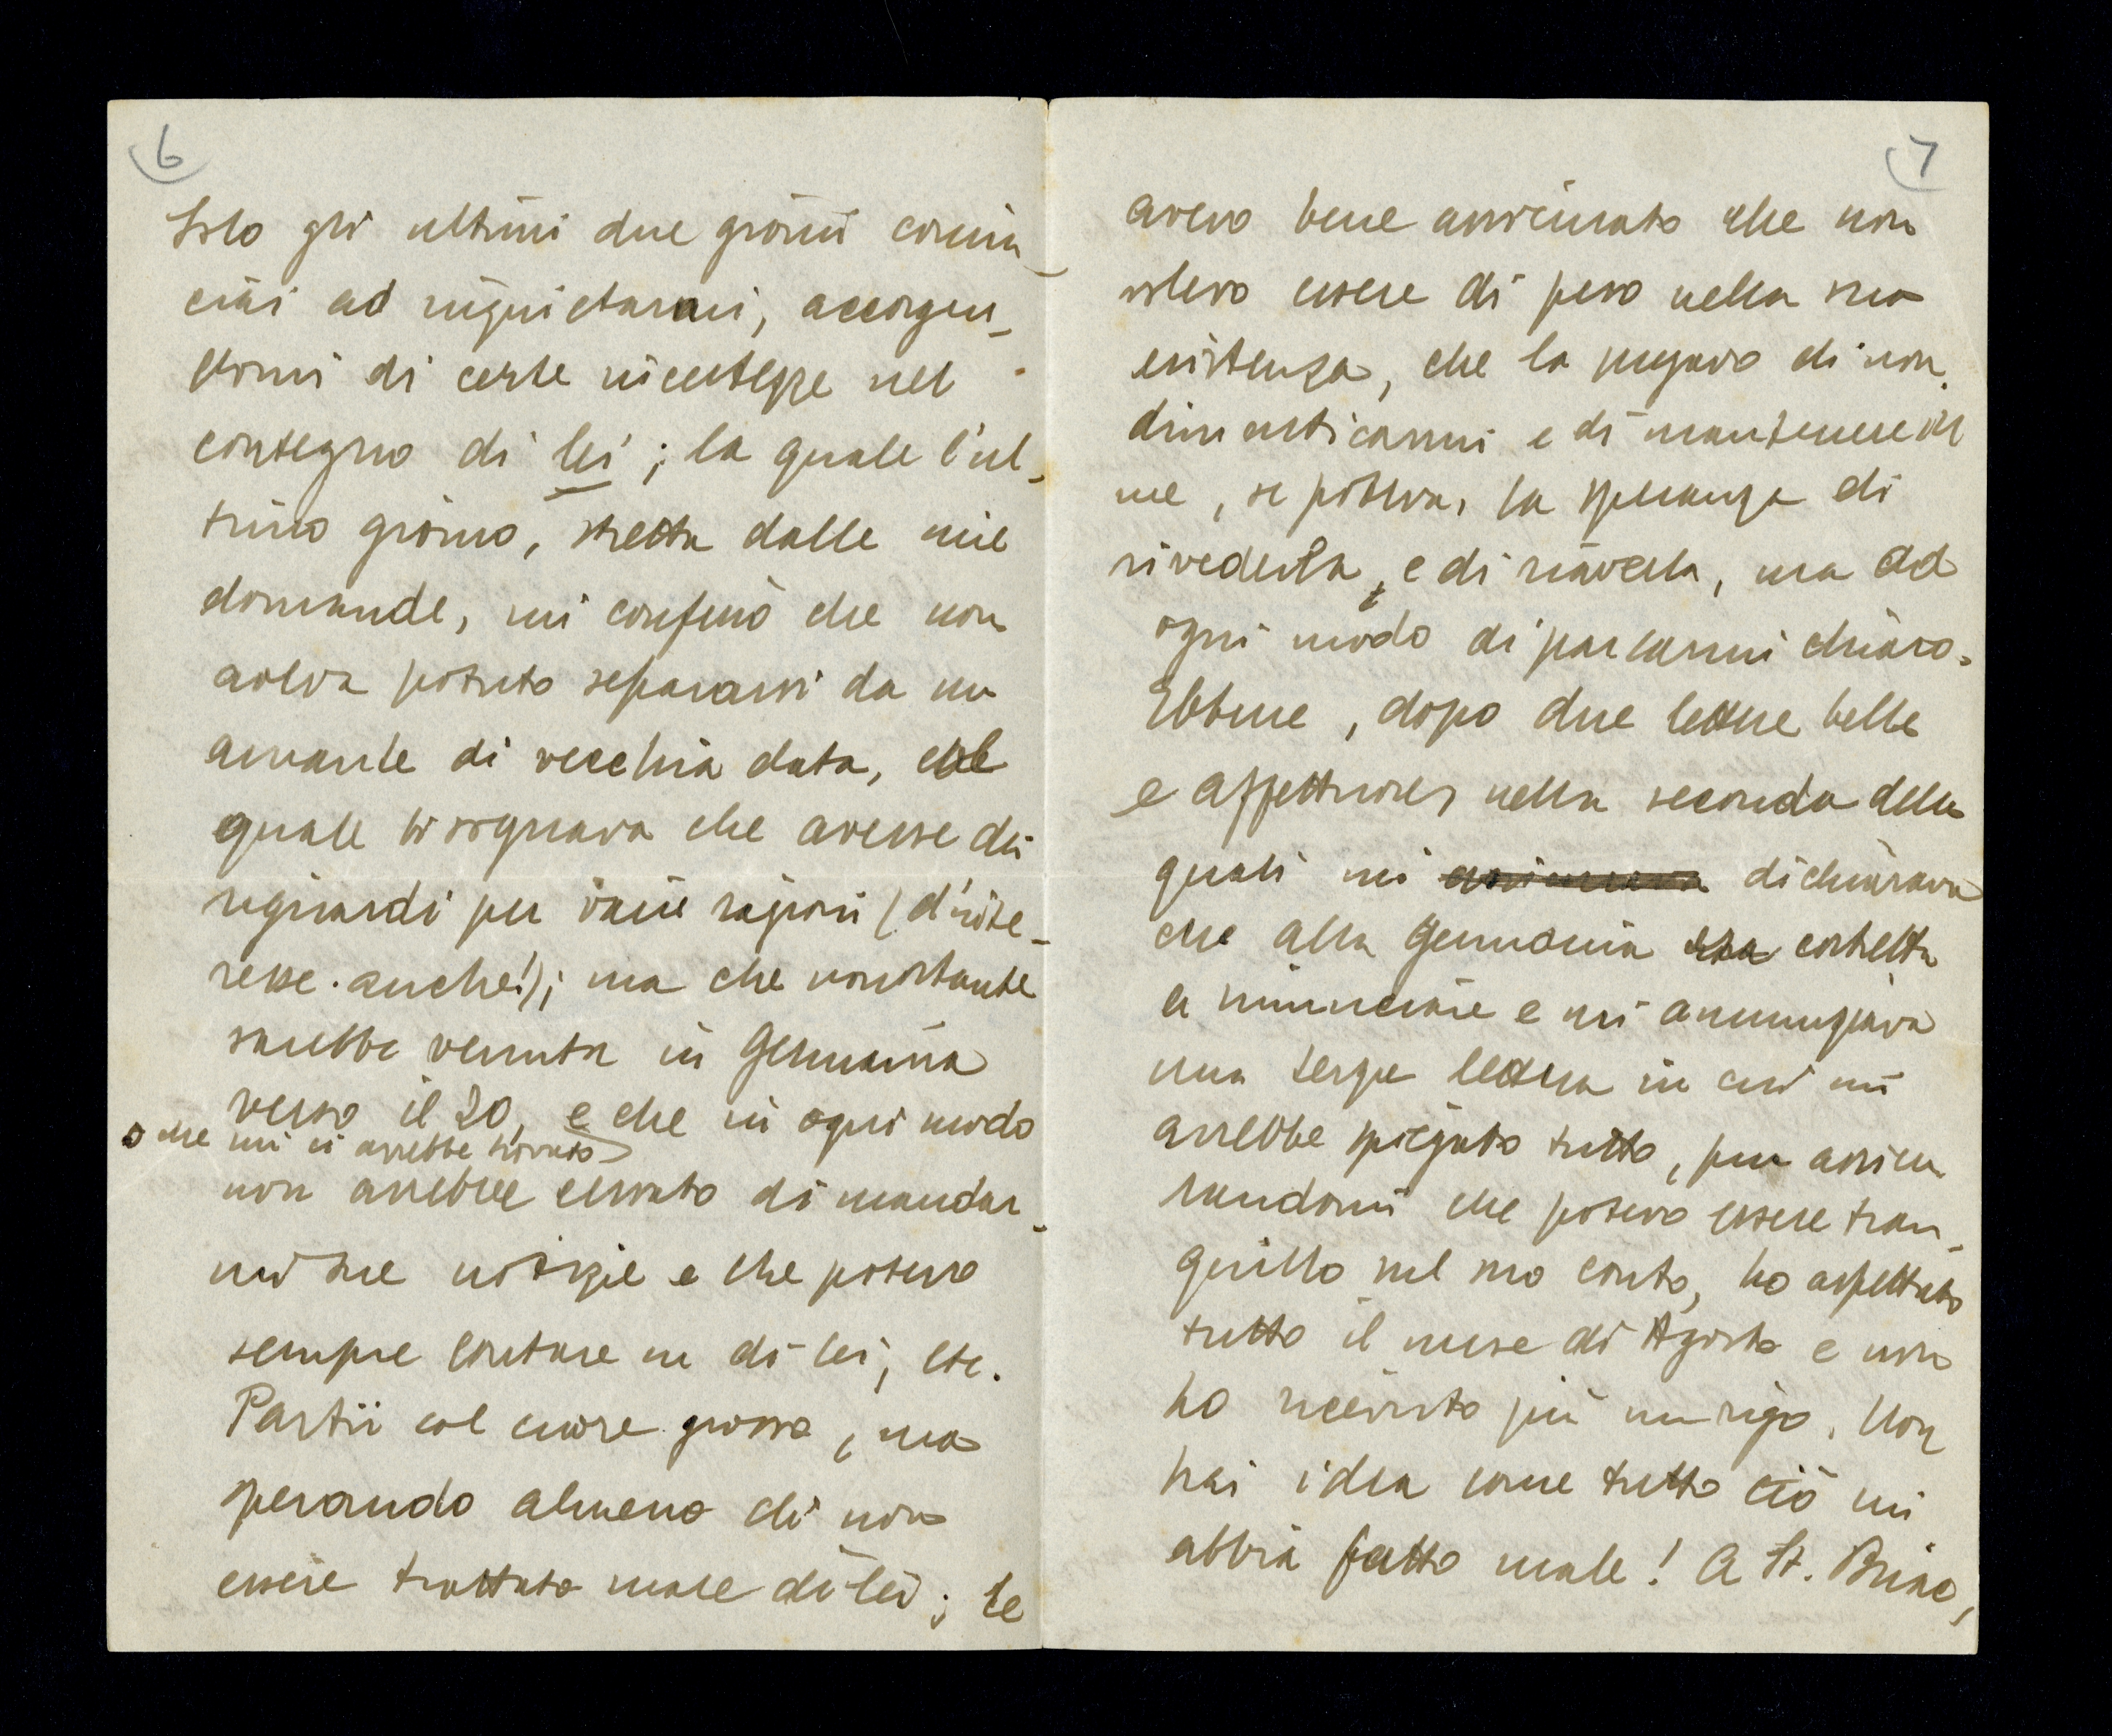 6
Solo gli ultimi due giorni comin-
ciai ad inquietarmi, accorgen-
domi di certe incertezze nel
contegno di lei; la quale l'ul-
timo giorno, stretta dalle mie
domande, mi confessò che non
aveva potuto separarsi da un
amante di vecchia data, al
quale bisognava che avesse dei
riguardi per varie ragioni (d'inte-
resse anche!); ma che nonostante
sarebbe venuta in Germania
verso il 20, e che in ogni modo
o che mi ci avrebbe trovato
non avrebbe cessato di mandar-
mi sue notizie e che potevo
sempre contare su di lei, etc.
Partii col cuore grosso, ma
sperando almeno di non
essere trattato male da lei; le
7
avevo bene assicurato che non
volevo essere di peso nella sua
esistenza, che la pregavo di non
dimenticarmi e di mantenere in
me, se poteva, la speranza di
rivederla, e di riaverla, ma ad
ogni modo di parlarmi chiaro.
Ebbene, dopo due lettere belle
e affettuose, nella seconda delle
quali mi assicurava dichiarava
che alla Germania era costretta
a rinunciare e mi annunziava
una terza lettera in cui mi
avrebbe spiegato tutto, pur assicu
randomi che potevo essere tran-
quillo sul suo conto, ho aspettato
tutto il mese di Agosto e non
ho ricevuto più un rigo. Non
hai idea come tutto ciò mi
abbia fatto male! A St. Briac,